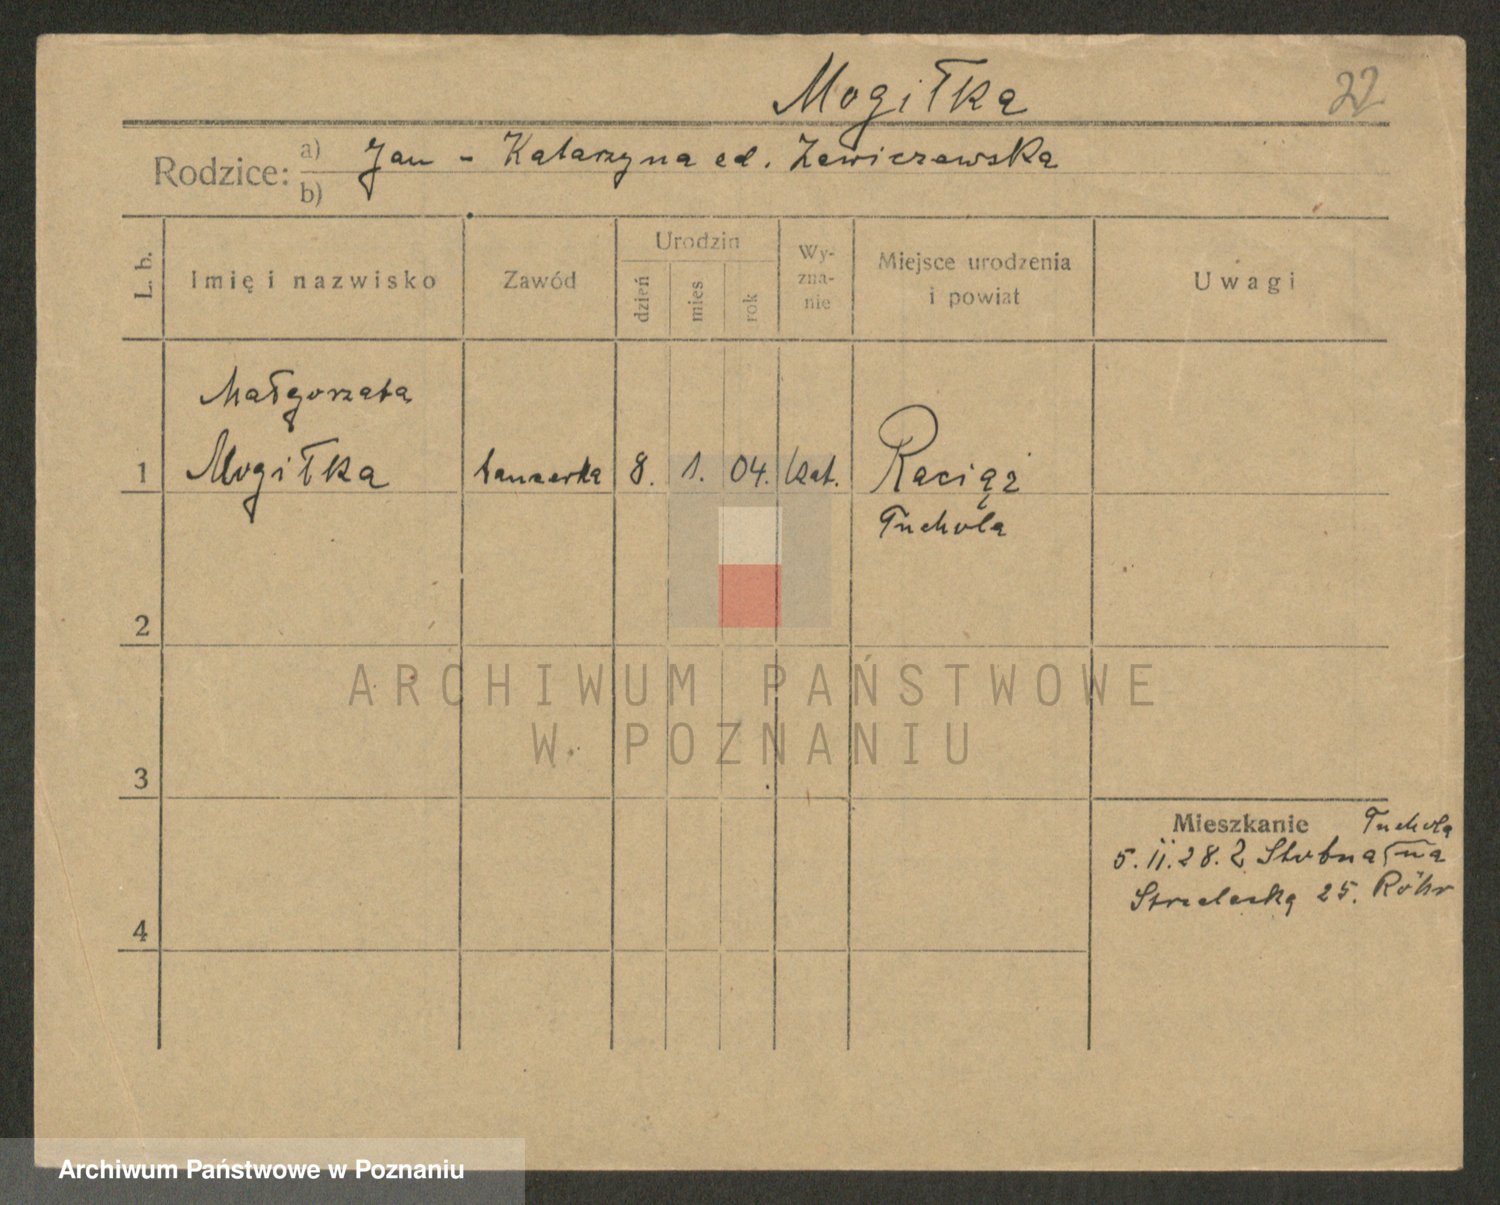 Mogiłka
22
Rodzice: a) Jan - Katarzyna ed. Zewiczewska
b)
L. b.
Imię i nazwisko
Zawód
Urodzin
dzień
mies
rok
Wy-
zna-
nie
Miejsce urodzenia
i powiat
Uwagi
Małgorzata
1 Mogiłka 8. 1. 04. kat. Raciąż
Tuchola
2
ARCHIWUM PAŃSTWOWE
W POZNANIU
3
Mieszkanie Tuchola
5. II. 28. Z
Strzelecka 25. Röhr
4
Archiwum Państwowe w Poznaniu